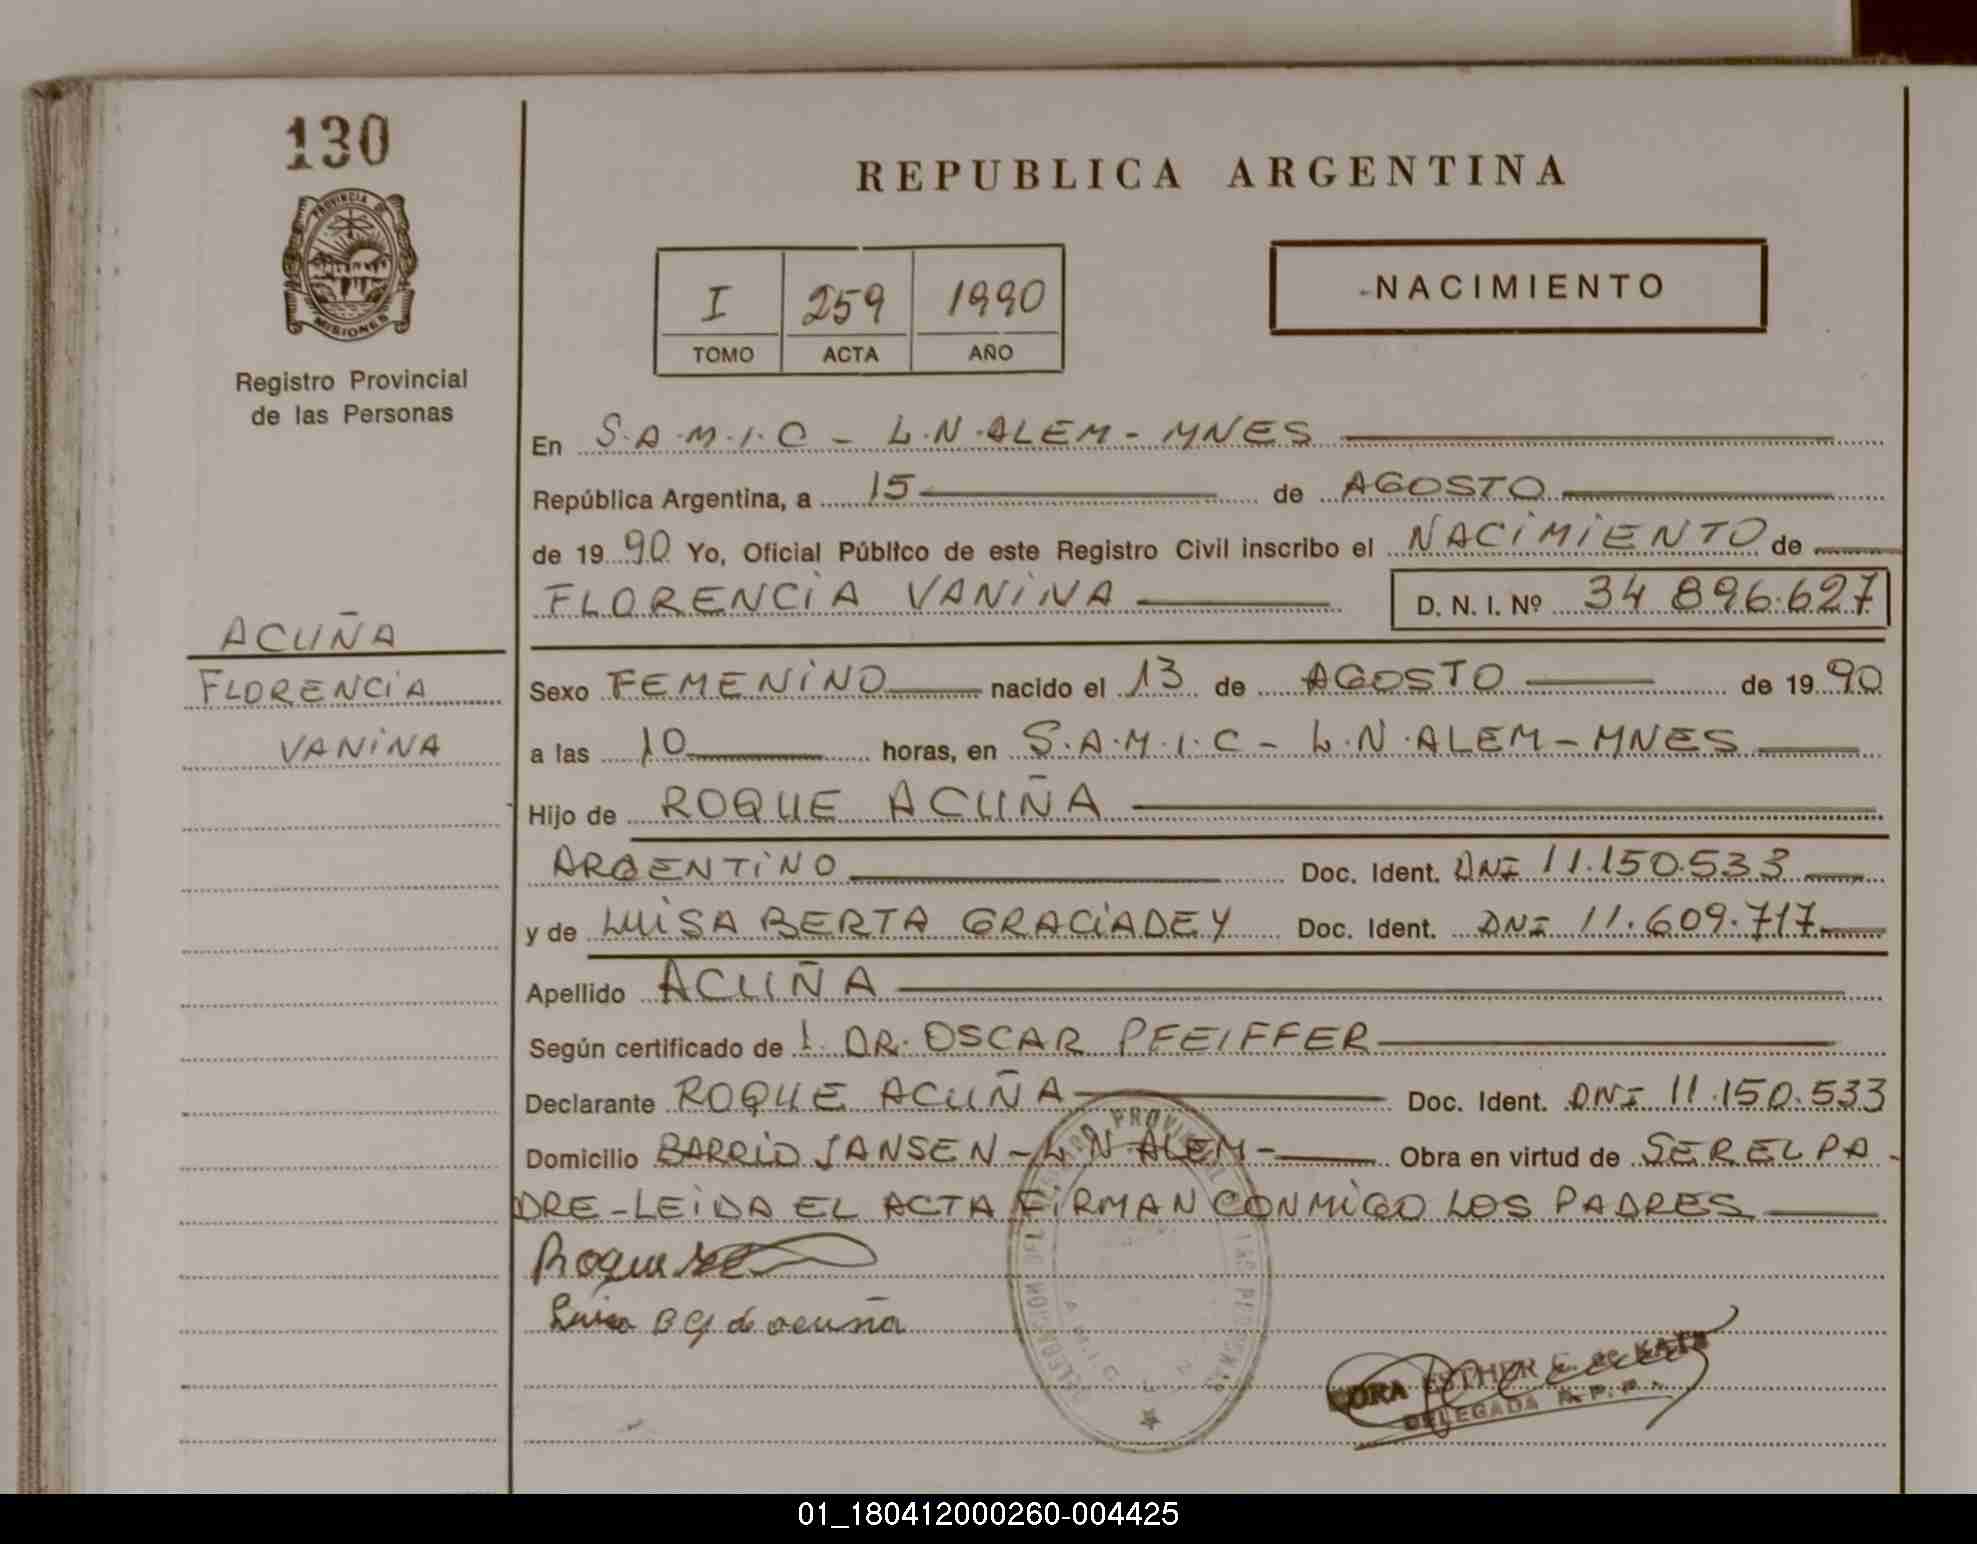 130
PROVINCIA DE
MISIONES
Registro Provincial
de las Personas
ACUÑA
FLORENCIA
VANINA
REPUBLICA ARGENTINA
I 259 1990
TOMO ACTA AÑO
NACIMIENTO
En S.A.M.I.C - L.N.ALEM - MNES
República Argentina, a 15 de AGOSTO
de 1990 Yo, Oficial Público de este Registro Civil inscribo el NACIMIENTO de
FLORENCIA VANINA D. N. I. Nº 34 896.627
Sexo FEMENINO nacido el 13 de AGOSTO de 1990
a las 10 horas, en S.A.M.I.C - L.N.ALEM - MNES
Hijo de ROQUE ACUÑA
ARGENTINO Doc. Ident. DNI 11.150.533
y de LUISA BERTA GRACIADEY Doc. Ident. DNI 11.609.717
Apellido ACUÑA
Según certificado de 1. DR. OSCAR PFEIFFER
Declarante ROQUE ACUÑA Doc. Ident. DNI 11.150.533
Domicilio BARRIO JANSEN - L N ALEM - Obra en virtud de SER EL PA
DRE - LEIDA EL ACTA FIRMAN CONMIGO LOS PADRES
Roque
Luisa B G de acuña
ESTHER E. de
DELEGADA R.P.P.
01_180412000260-004425